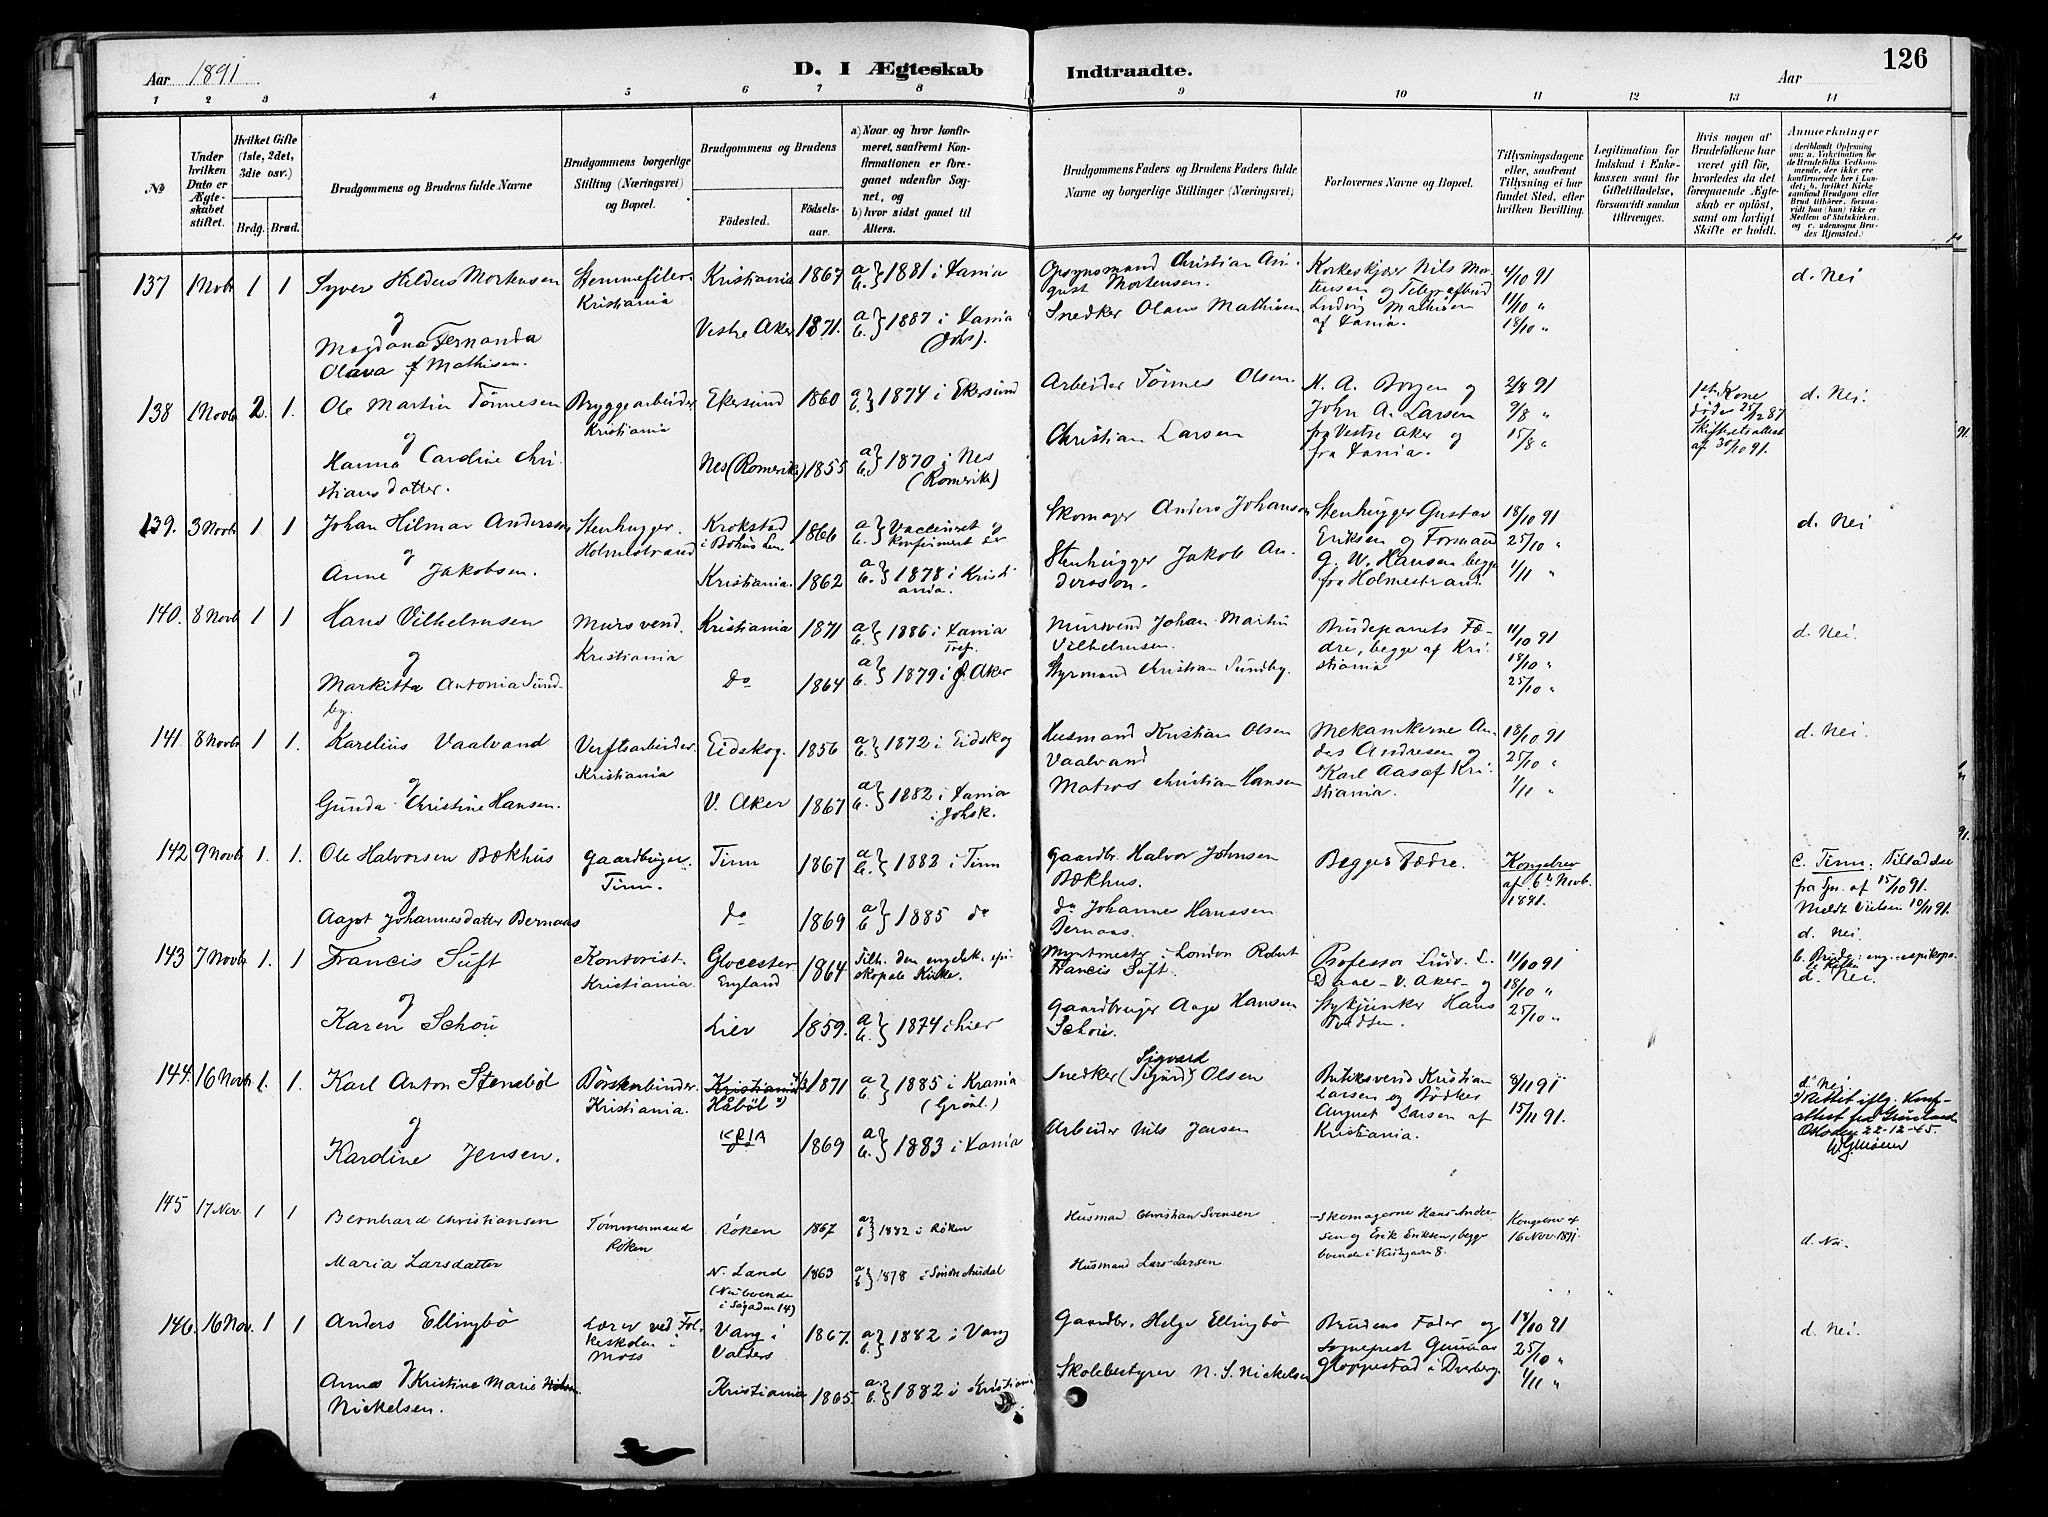 126
Aar 1891
D. I Ægteskab
Indtraadte.
Aar
1 2 3 4 5 6 7 8 9 10 11 12 13 14
No
Under hvilken Dato er Ægteskabet stiftet.
Hvilket Gifte (1ste, 2det, 3die osv.)
Brdg. Brud.
Brudgommens og Brudens fulde Navne
Brudgommens borgerlige Stilling (Næringsvei) og Bopæl.
Brudgommens og Brudens
Fødested.
Fødselsaar.
a) Naar og hvor konfirmeret, saafremt Konfirmationen er foregaaet udenfor Sognet, og
b) hvor sidst gaaet til Alters.
Brudgommens Faders og Brudens Faders fulde Navne og borgerlige Stillinger (Næringsvei)
Forlovernes Navne og Bopæl.
Tillysningsdagene eller, saafremt Tillysning ei har fundet Sted, efter hvilken Bevilling.
Legitimation for Indskud i Enkekassen samt for Giftetilladelse, forsaavidt saadan tiltrænges.
Hvis nogen af Brudefolkene har været gift før, hvorledes da det foregaaende Ægteskab er opløst, samt om lovligt Skifte er holdt.
Anmærkninger
137 1 Novbr 1 1 Syver Hilders Mortensen Stemmefiler Kristiania 1867 a b } 1881 i Xania Opsynsmand Christian August Mortensen. Korkeskjærer Nils Mortensen og Telegrafbud Ludvig Mathisen af Xania. 4/10 91 d. Nei
Kristiania
og
Magdana Fernanda Olava Mathisen. Vestre Aker 1871. a b } 1887 i Xania (Johs). Snedker Olaus Mathisen 11/10 "
18/10 "
138 1 Novb 2. 1. Ole Martin Tønnesen Bryggearbeider Ekersund 1860 a b } 1874 i Ekersund Arbeider Tønnes Olsen. H. A. Borgen og John A. Larsen fra Vestre Aker og fra Xania. 2/8 91 1ste Kone døde 25/12 87 Skifteretsattest af 30/10 91. d. Nei.
Kristiania 9/8 "
og
Hanna Caroline Christiansdatter. Nes (Romerike) 1855 a b } 1870 i Nes (Romerike) Christian Larsen 15/8 "
139. 3 Novbr 1 1 Johan Hilmar Andersson Stenhugger. Krokstad i Bohus Len 1866 a b } Vaccineret og konfirmeret der Skomager Anders Johanson Stenhugger Gustav Eriksen og Formand G. W. Hansen begge fra Holmestrand. 18/10 91 d. Nei
Holmestrand 25/10 "
og
Anne Jakobsen. Kristiania. 1862 a b } 1878 i Kristiania. Stenhugger Jakob Andersson. 1/11 "
140. 8 Novb 1 1 Hans Vilhelmsen Mursvend. Kristiania 1871 a b } 1886 i Xania Tref. Mursvend Johan Martin Vilhelmsen. Brudeparrets Fædre, begge af Kristiania 11/10 91 d. Nei.
Kristiania 18/10 "
og
Markitta Antonia Sundby. do 1864 a b } 1879 i Aker Styrmand Christian Sundby. 25/10 "
141. 8 Novbr 1 1. Karelius Vaalvand Verftsarbeider Eidskog. 1856 a b } 1872 i Eidskog Husmand Kristian Olsen Vaalvand Mekanikerne Andas Andresen og Karl Aas af Kristiania. 18/10 91 d. Nei.
Kristiania 25/10 "
og
Gunda Christine Hansen. V. Aker 1867 a b } 1882 i Xania i Johsk. Matros Christian Hansen 1/11 "
142 9 Novbr 1. 1. Ole Halvorsen Bækhus Gaardbruger Tinn 1867 a b } 1883 i Tinn Gaardbr. Halvor Johnsen Bækhus. Begges Fædre. Kongebrev af 6te Novb. 1891. c. Tinn. Tilladelse fra Spr. af 15/10 91. Meldt Vielsen 10/11 91. d. Nei.
Tinn.
og
Aagot Johannesdatter Bernaas do 1869 a b } 1885 do do Johannes Hanssen Bernaas.
143 7 Novbr 1. 1 Francis Suft Kontorist. Glocester England 1864 Tilh. den engelsk. episkopale Kirke. Myntmester i London Robert Francis Suft. Professor Ludv. L. Daae - V. Aker - og Stykjunker Hans Tvedten. 11/10 91 b. Brudg: eng. episkopale Kirke d. Nei.
Kristiania. 18/10 "
og
Karen Schou Lier 1859. a b } 1874 i Lier Gaardbruger Aage Hansen Schou. 25/10 "
144. 16 Novbr 1. 1. Karl Anton Stensbøl Børstenbinder Kristiania Håbøl 1871 a b } 1885 i Krania (Grønl.) Snedker (Sigurd) Sigvard Olsen Butiksvend Kristian Larsen og Bødker August Larsen af Kristiania. 8/11 91 d. Nei
Kristiania. 15/11 91. Rettet iflg. Konf-attest fra Grønland Oslo den 22-12-45.
og
Kardine Jensen. KRIA 1869 a b } 1883 i Xania Arbeider Nils Jensen
145 17 Nov. 1 1 Bernhard Christiansen Tømmermand Røken 1867 a b } 1882 i Røken Husmand Christian Svensen Skomagerne Hans Andersen og Erik Eriksen, begge boende i Kirkegarn 8. Kongebrev af 16 Nov. 1891. d. Nei.
Røken
Maria Larsdatter N. Land 1863 a b } 1878 i Søndre Aurdal Husmand Lars Larsen
(Nu boende i Søgaden 14)
146. 16 Nov. 1 1 Anders Ellingbø Lærer ved Folkeskolen i Moss Vang i Valders 1867. a b } 1882 i Vang Gaardbr. Helge Ellingbø Brudens Fader og Sogneprest Gunnar Gloppestad i Dverberg. 18/10 91 d. Nei.
25/10 "
Anna Kristine Marie Nickelsen. Kristiania 1865. a b } 1882 i Kristiania Skolebestyrer N. S. Nickelsen 1/11 "